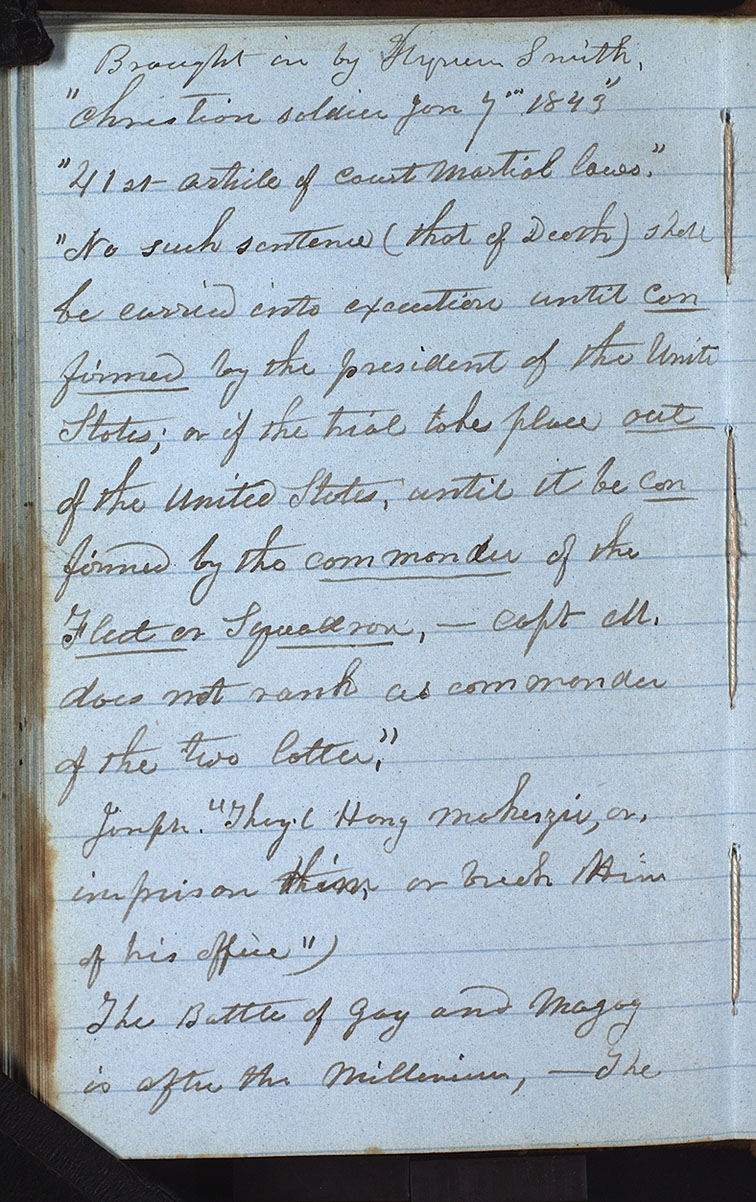 Brought in by Hyrum Smith,
"Christion soldier Jan 7th 1843"
"41st article of court Martial laws."
"No such sentence (that of Death) shall
be carried into execution until con
firmed by the president of the Unite
States; or if the trial takes place out
of the United States, until it be con
firmed by the commander of the
Fleet or Squadron, — capt M.
does not rank as commander
of the two latter,"
Joseph. "They'l Hang mckenzie, or,
imprison him, or break Him
of his office")
The Battle of Gog and Magog
is after the Millenium, — The